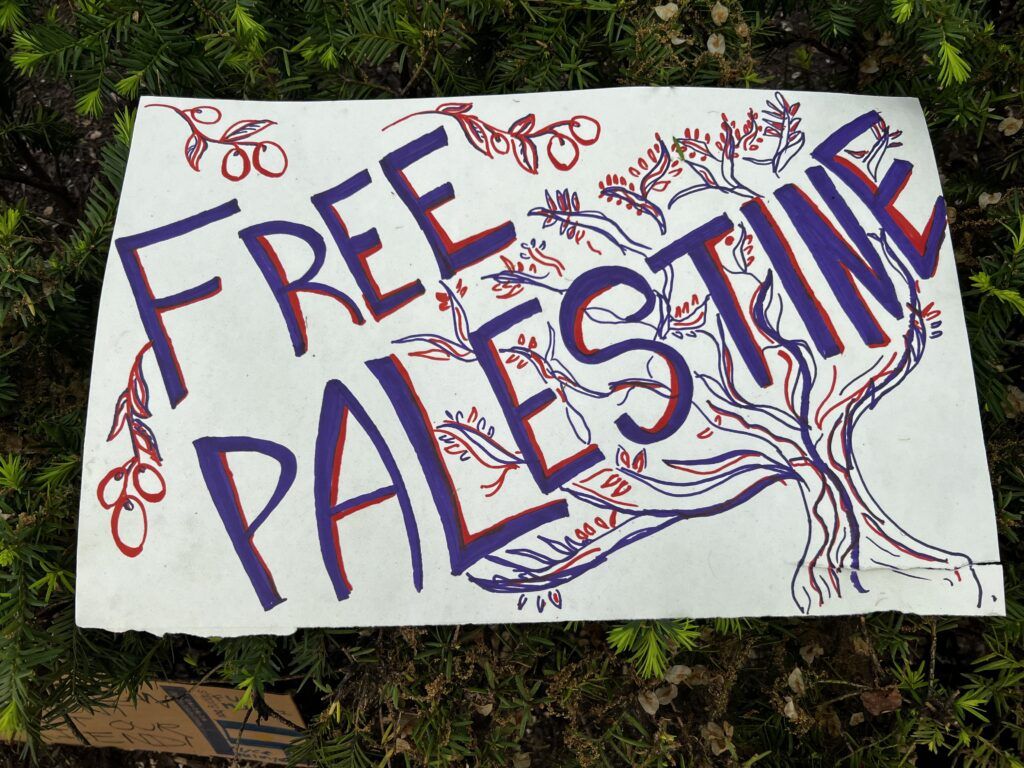 FREE
PALESTINE
OUR